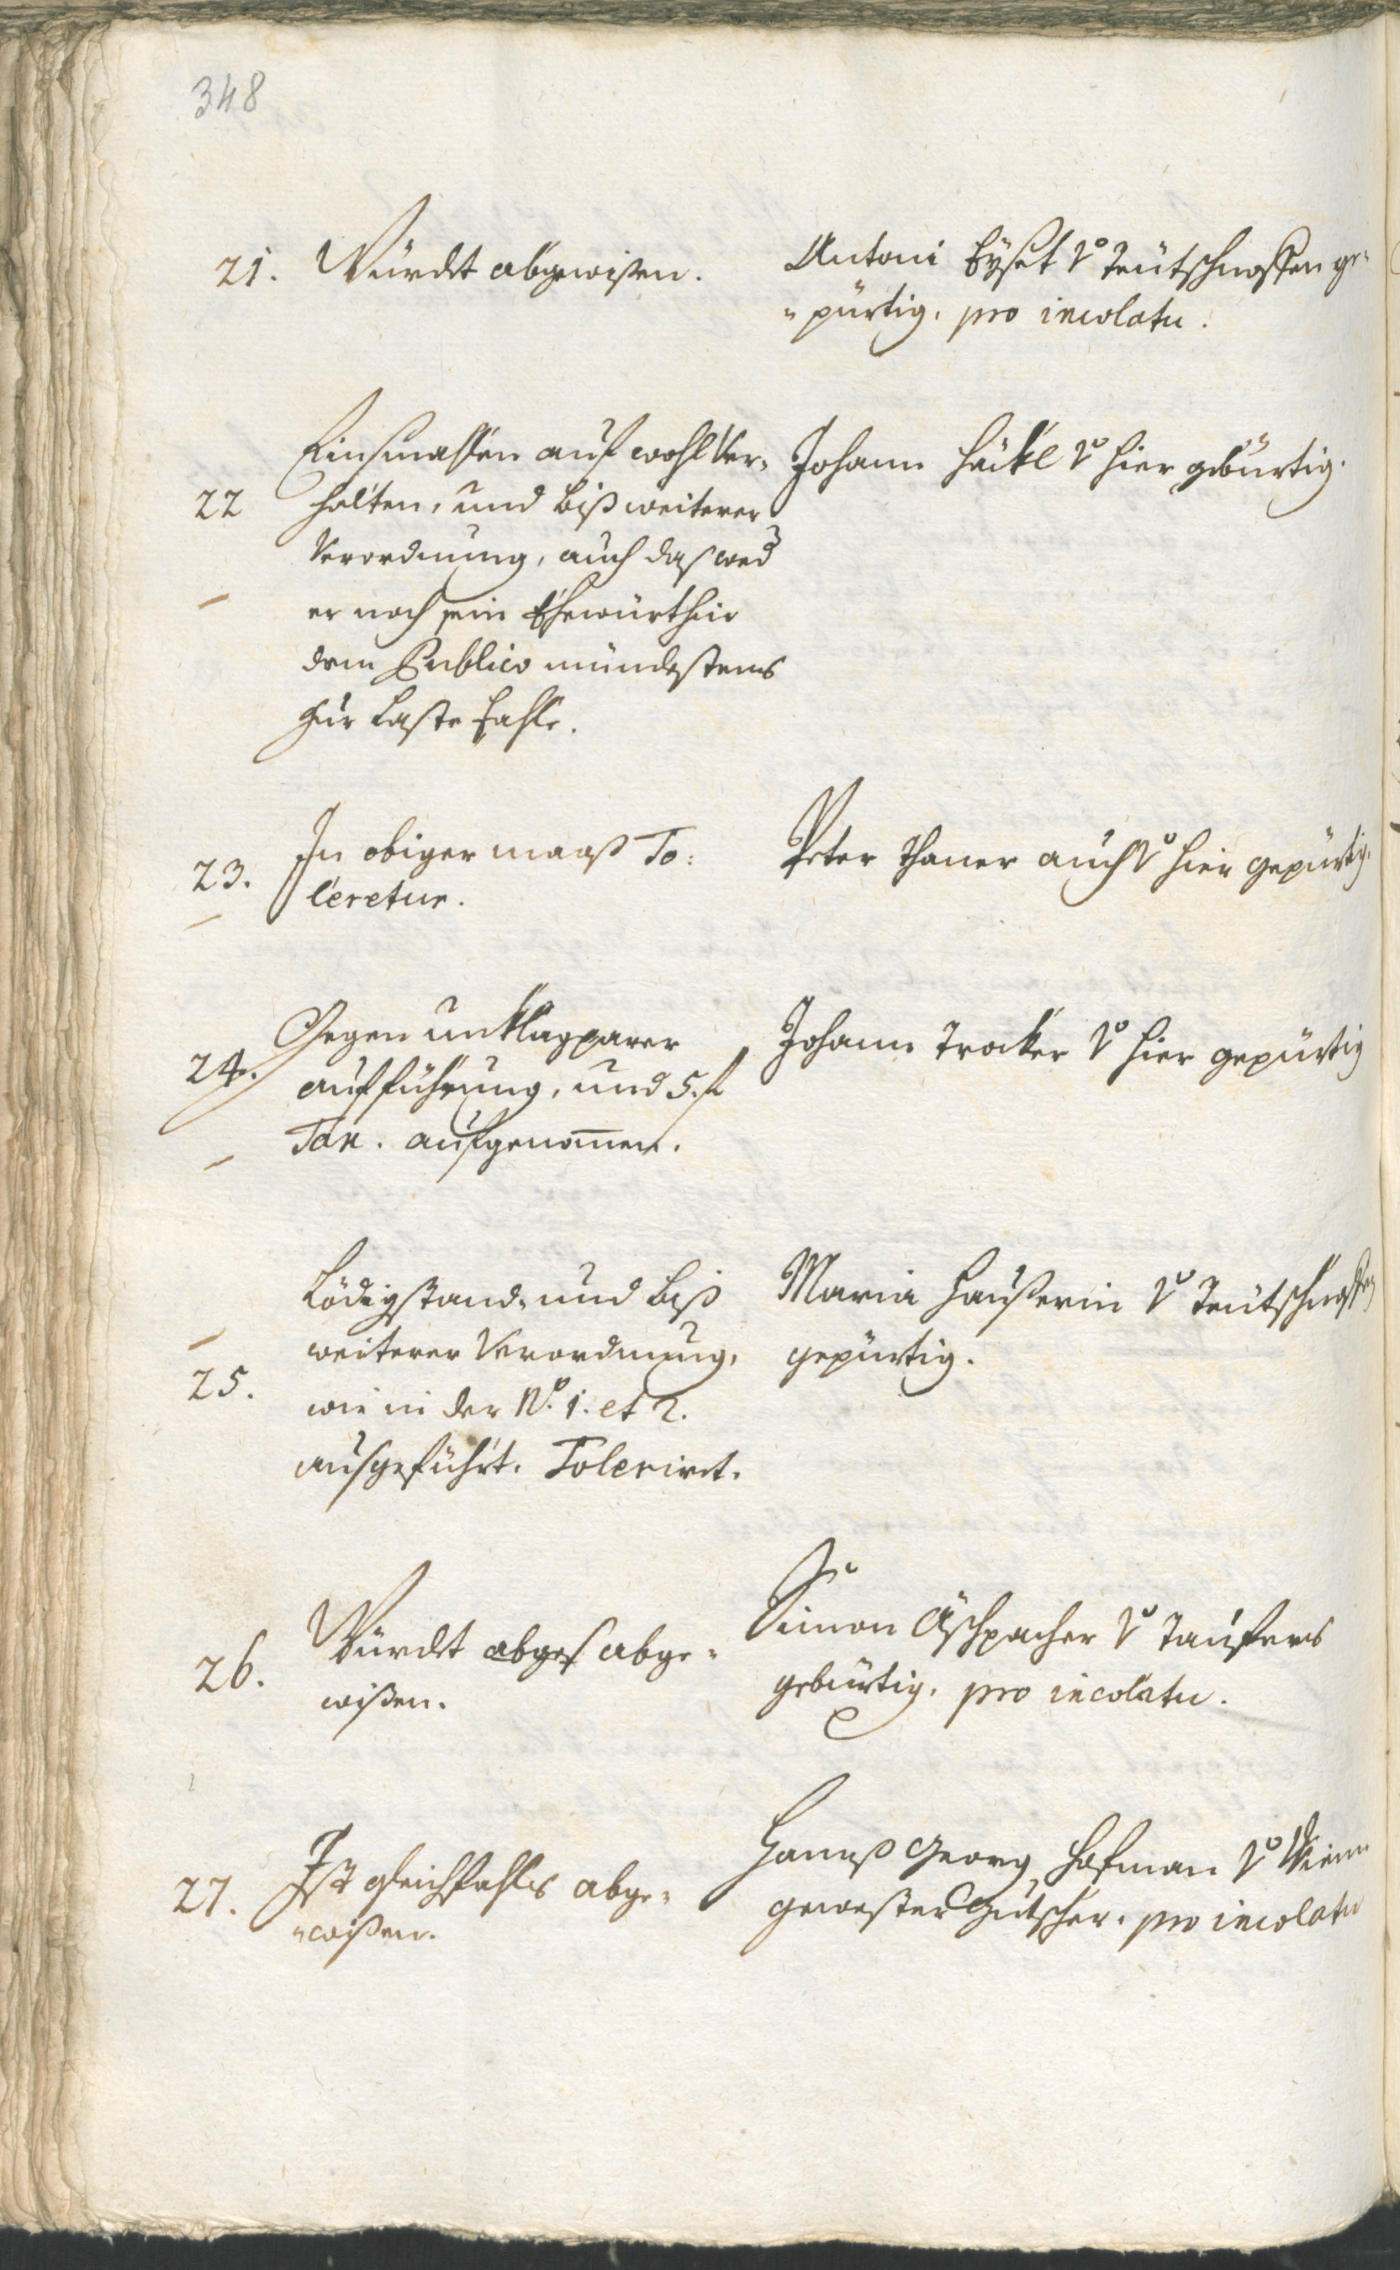 348
21. Würdet abgewißen.
Antoni Eyset v Teütschnoffen ge-
pürtig, pro incolatu.
Einsmallen auf wohl Ver-
22 halten, und biß weiterer
Verordnung, auch das wed
er noch sein Ehewürthin
dem Publico mündestens
zur Laste falle.
Johann Häckl v hier gebürtig.
23. In obiger maaß To-
leretur.
Peter Thaner auch v hier gepürtig.
Gegen unklagparer
24. aufführung, und 5. f
Tax. aufgenomen.
Johann Trocker v hier gepürtig
Lödigstand, und biß
weiterer Verordnung,
25. wie in der No. 1. et 2.
ausgeführt. Tolerirt.
Maria Haußerin v Teütschnoffen
gepürtig.
26. Würdet abges abge-
wißen.
Simon Äschpacher v Taufers
gebürtig, pro incolatu.
27. Ist gleichfahls abge-
wißen.
Hannß Georg Hofman v Wienn
gewester Gutscher. pro incolatu